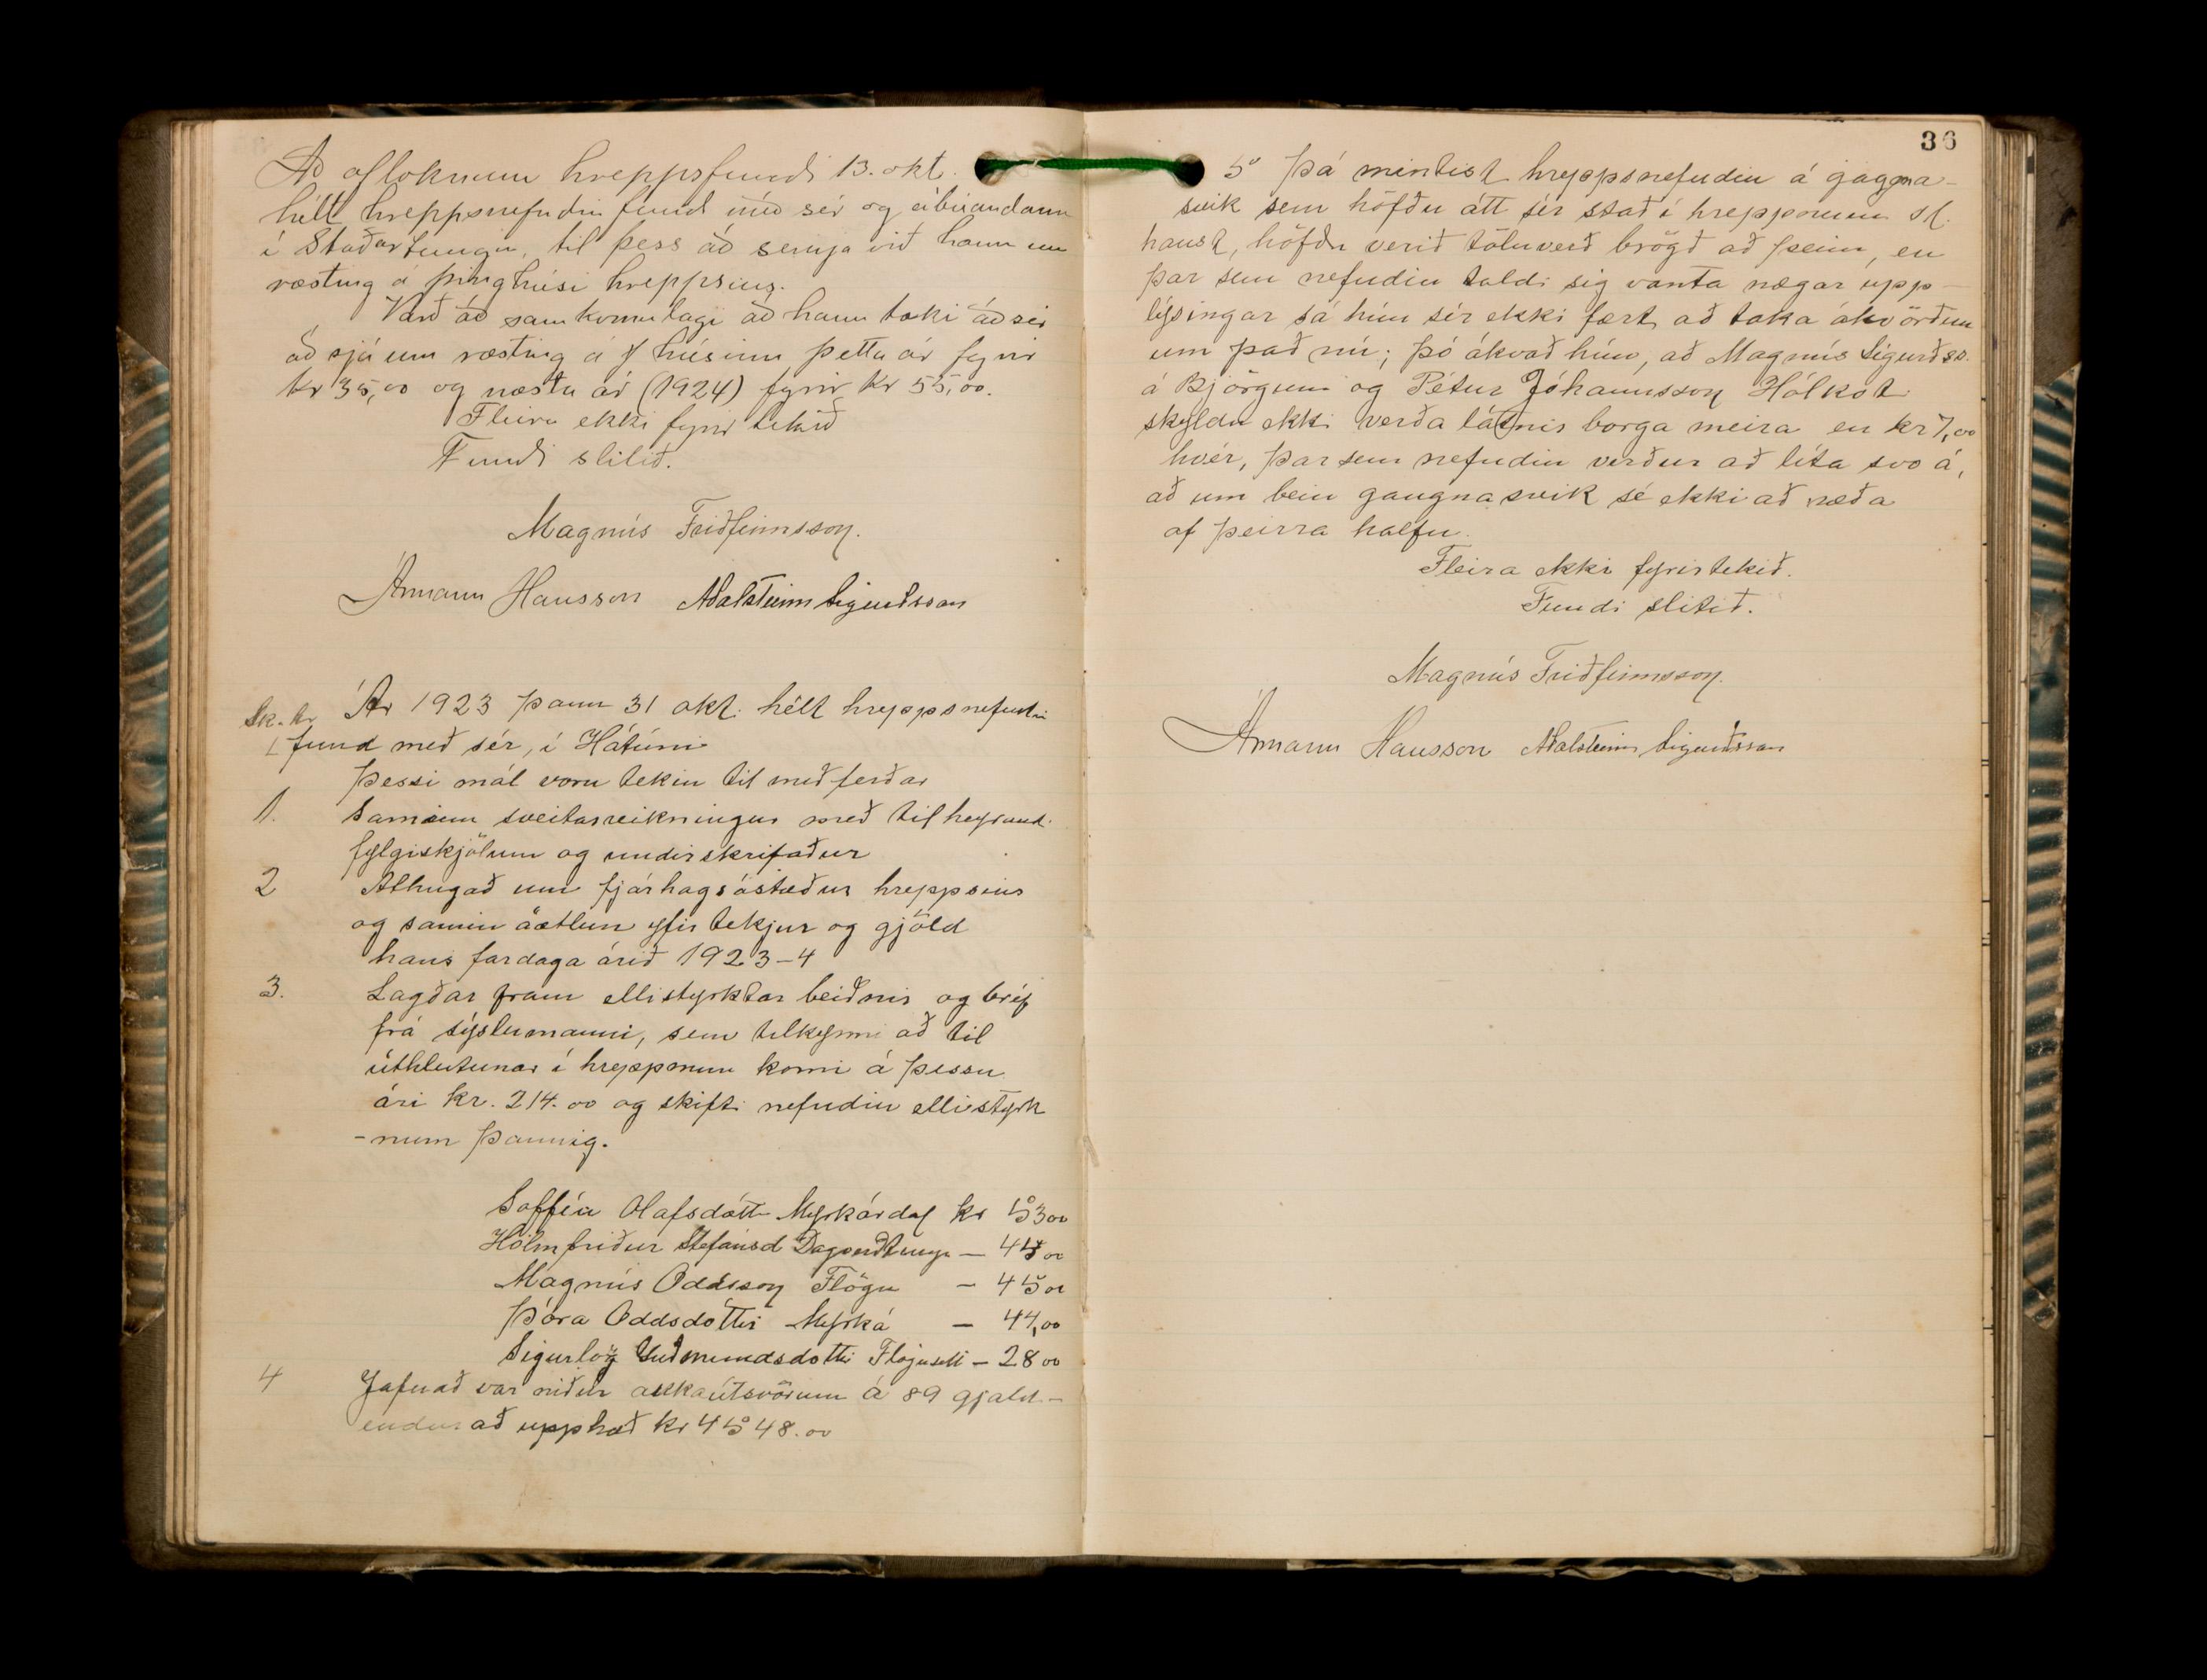 Að afloknum hreppsfundi 13. okt.
hélt hreppsnefndin fund með sér og ábúandann
í Staðartungu, til þess að semja við hann um
ræsting á þinghúsi hreppsins.
Varð að samkomulagi að hann taki að sér
að sjá um ræsting á húsinu þetta ár fyrir
kr 35,00 og næsta ár (1924) fyrir kr 55,00.
Fleira ekki fyrir tekið
Fundi slitið.
Magnús Friðfinnsson.
Ármann Hansson Aðalsteinn Sigurðsson
Ár 1923 þann 31 okt. hélt hreppsnefndin
fund með sér, í Hátúni
Þessi mál voru tekin til meðferðar
1. Saminn sveitarreikningur með tilheyrand.
fylgiskjölum og undirskrifaður
2 Athugað um fjárhagsástæður hreppsins
og samin áætlun yfir tekjur og gjöld
hans fardaga árið 1923-4
3. Lagðar fram ellistyrktar beiðnir og bréf
frá sýslumanni, sem tilkynni að til
úthlutunar í hreppnum komi á þessu
ári kr. 214.00 og skifti nefndin ellistyrk
-num þannig.
Soffía Olafsdóttir Myrkárdal kr 53 00
Hólmfríður Stefánsd Dagverðtungu - 44 00
Magnús Oddsson Flögu - 45 00
Þóra Oddsdóttir Myrká - 44,00
Sigurlög Guðmundsdottir Flöguseli - 28 00
4 Jafnað var niður aukaútsvörum á 89 gjald-
endur að upphæð kr 4548.00
36
5 Þá mintist hreppsnefndin á gagna-
svik sem höfðu átt sér stað í hreppnum sl.
haust, höfðu verið töluverð brögð að þeim, en
þar sem nefndin taldi sig vanta nægar upp-
lýsingar sá hún sér ekki fært að taka ákvörðun
um það nú; þó ákvað hún, að Magnús Sigurðss.
á Björgum og Pétur Jóhannsson Hólkot
skyldu ekki verða látnir borga meira en kr 7,00
hvér, þar sem nefndin verður að líta svo á,
að um bein gaugnasvik sé ekki að ræða
af þeirra halfu.
Fleira ekki fyrirtekið.
Fundi slitið.
Magnús Friðfinnsson.
Ármann Hansson Aðalsteinn Sigurðsson